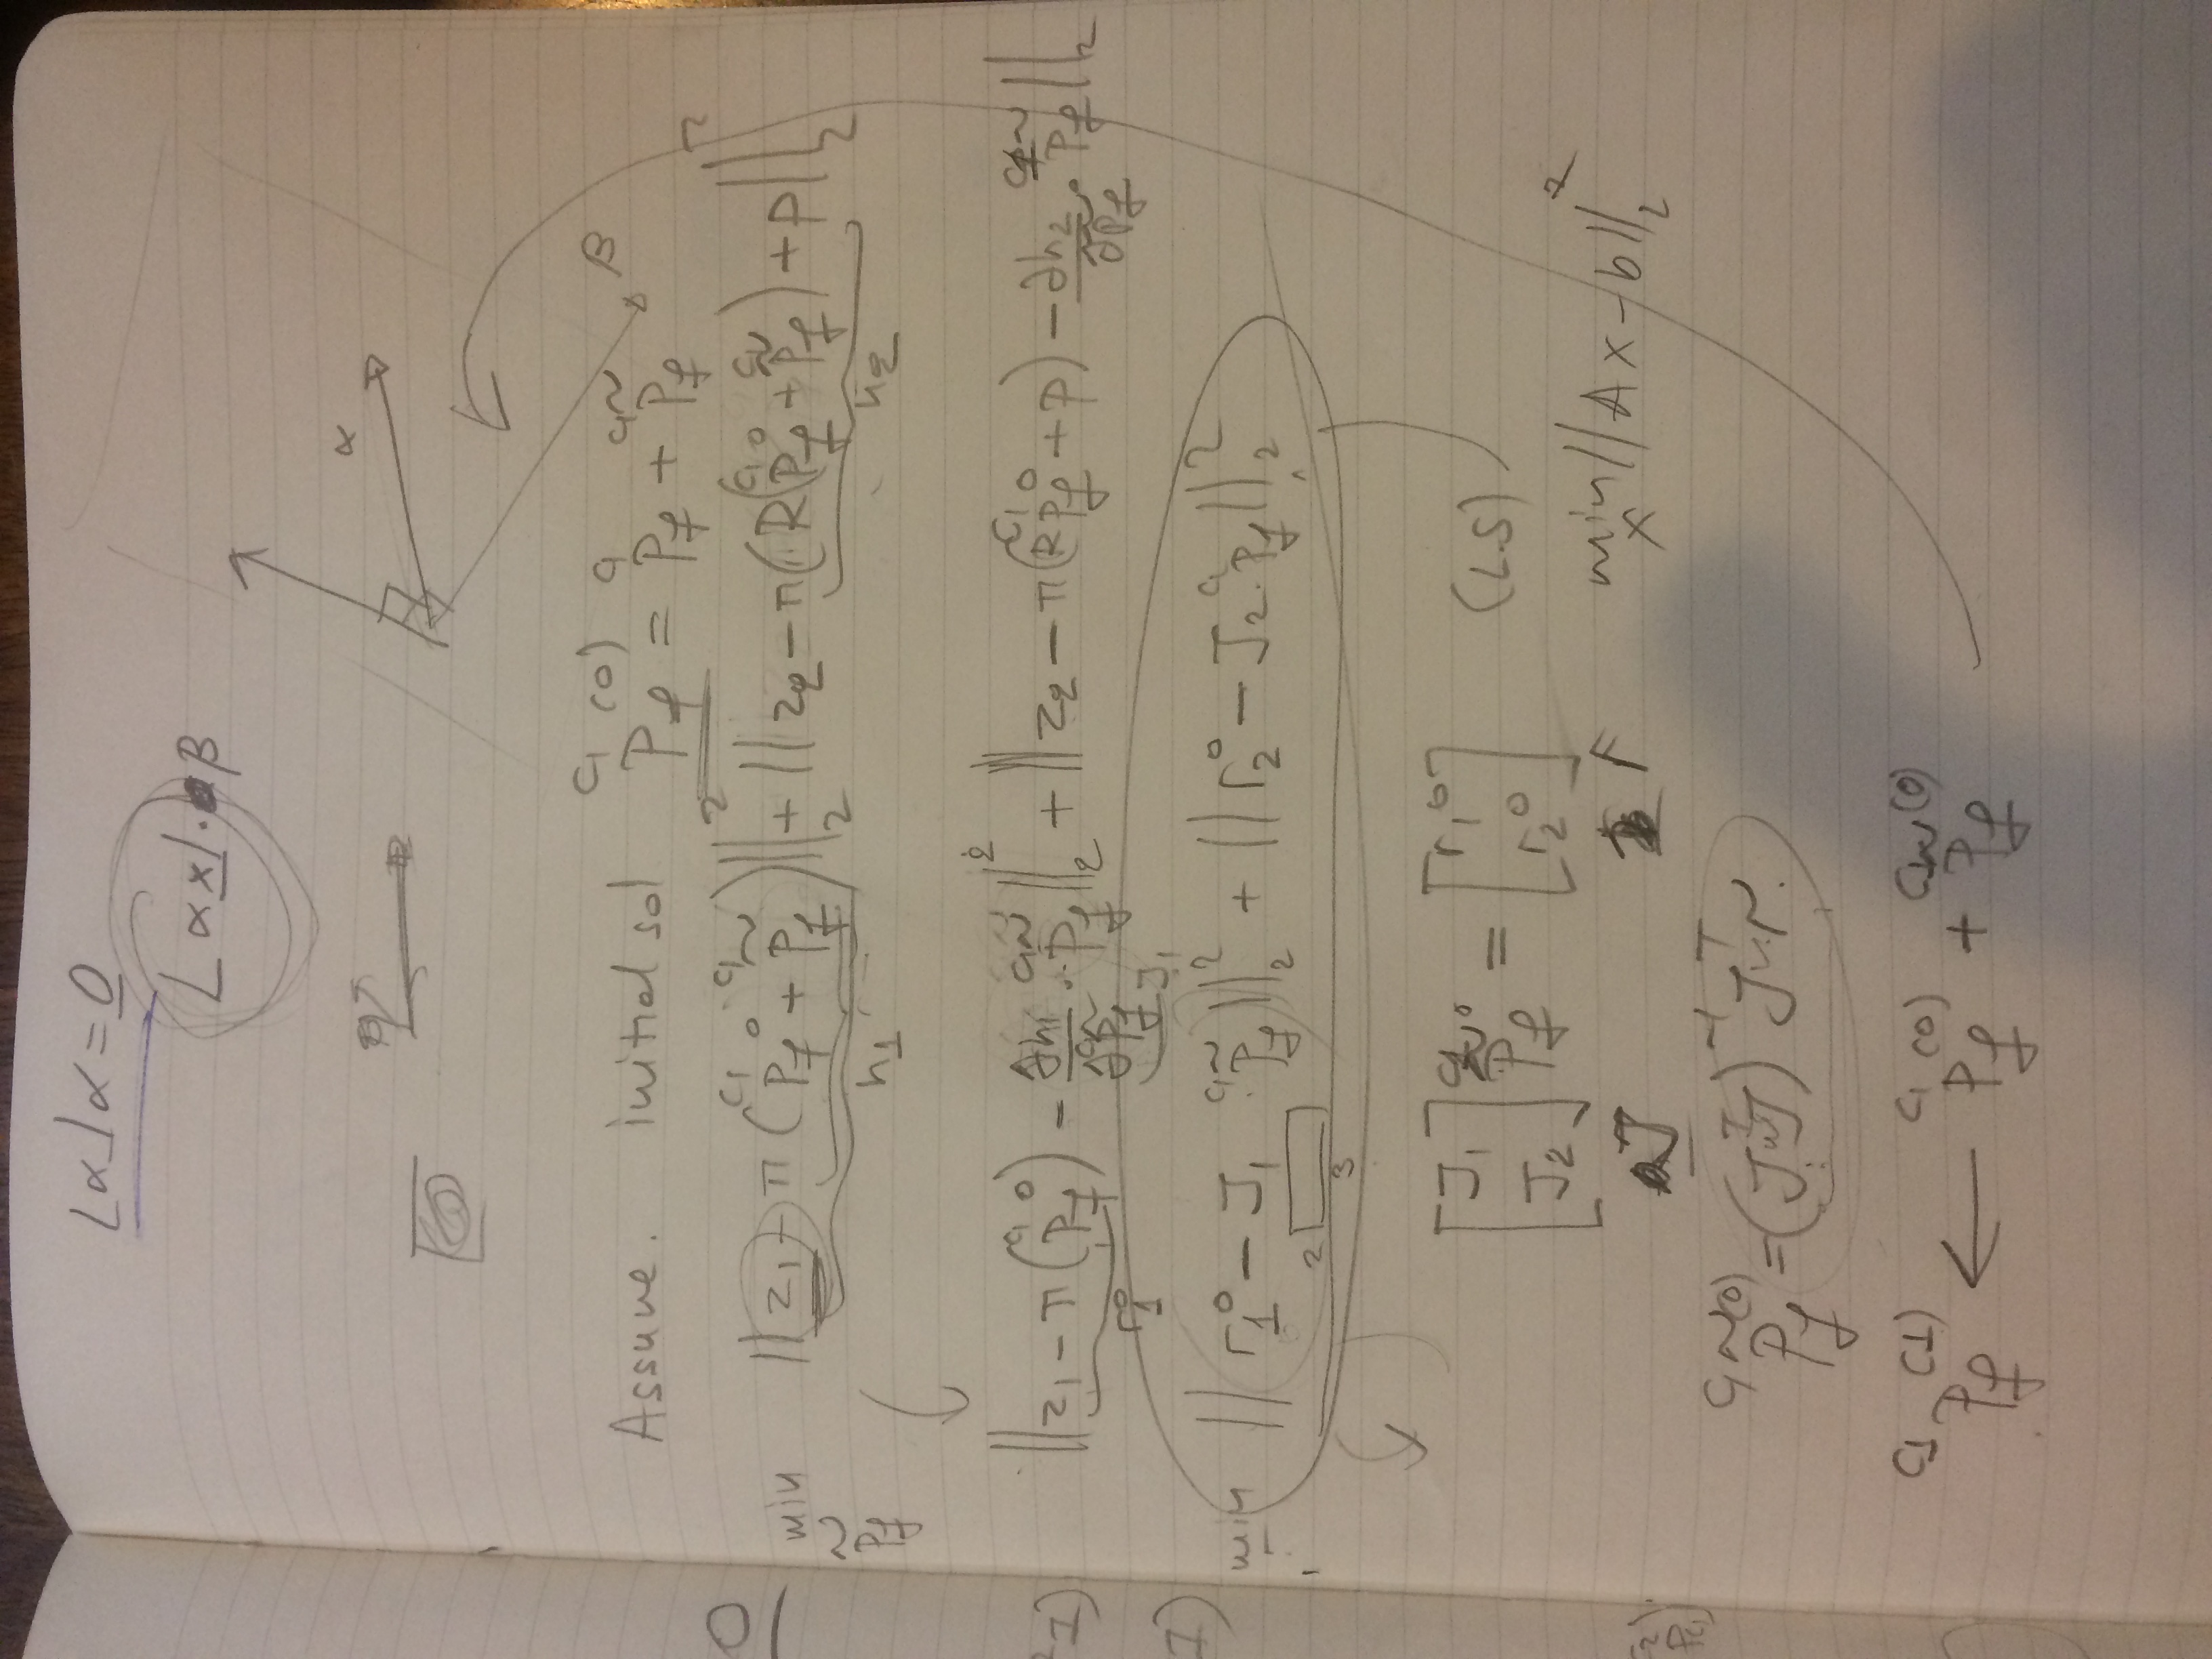 ⌊α⌋α = 0
⌊α x⌋ · β
α
β
Assume. initial sol ^{C1}P_f^{(0)} = ^{C1}P_f + ^{C1}P̃_f
min_{P̃_f} ||z_1 - π(^{C1}P_f^0 + ^{C1}P̃_f)||_2^2 + ||z_2 - π(R(^{C1}P_f^0 + ^{C1}P̃_f) + P||_2^2
h_1 h_2
||z_1 - π(^{C1}P_f^0) - ∂h_1/∂^{C1}P̃_f · ^{C1}P̃_f||_2^2 + ||z_2 - π(R ^{C1}P_f^0 + P) - ∂h_2/∂P̃_f · ^{C1}P̃_f||_2
r_1^0 J_1
min ||r_1^0 - J_1 · ^{C1}P̃_f||_2^2 + ||r_2^0 - J_2 · ^{C1}P_f||_2^2
2 3
[J_1 J_2] ^{C1}P̃_f^0 = [r_1^0 r_2^0] (L.S)
J r
min_x ||Ax - b||_2^2
^{C1}P̃_f^{(0)} = (J^T J)^{-1} J^T · r.
^{C1}P_f^{(1)} ← ^{C1}P_f^{(0)} + ^{C1}P̃_f^{(0)}